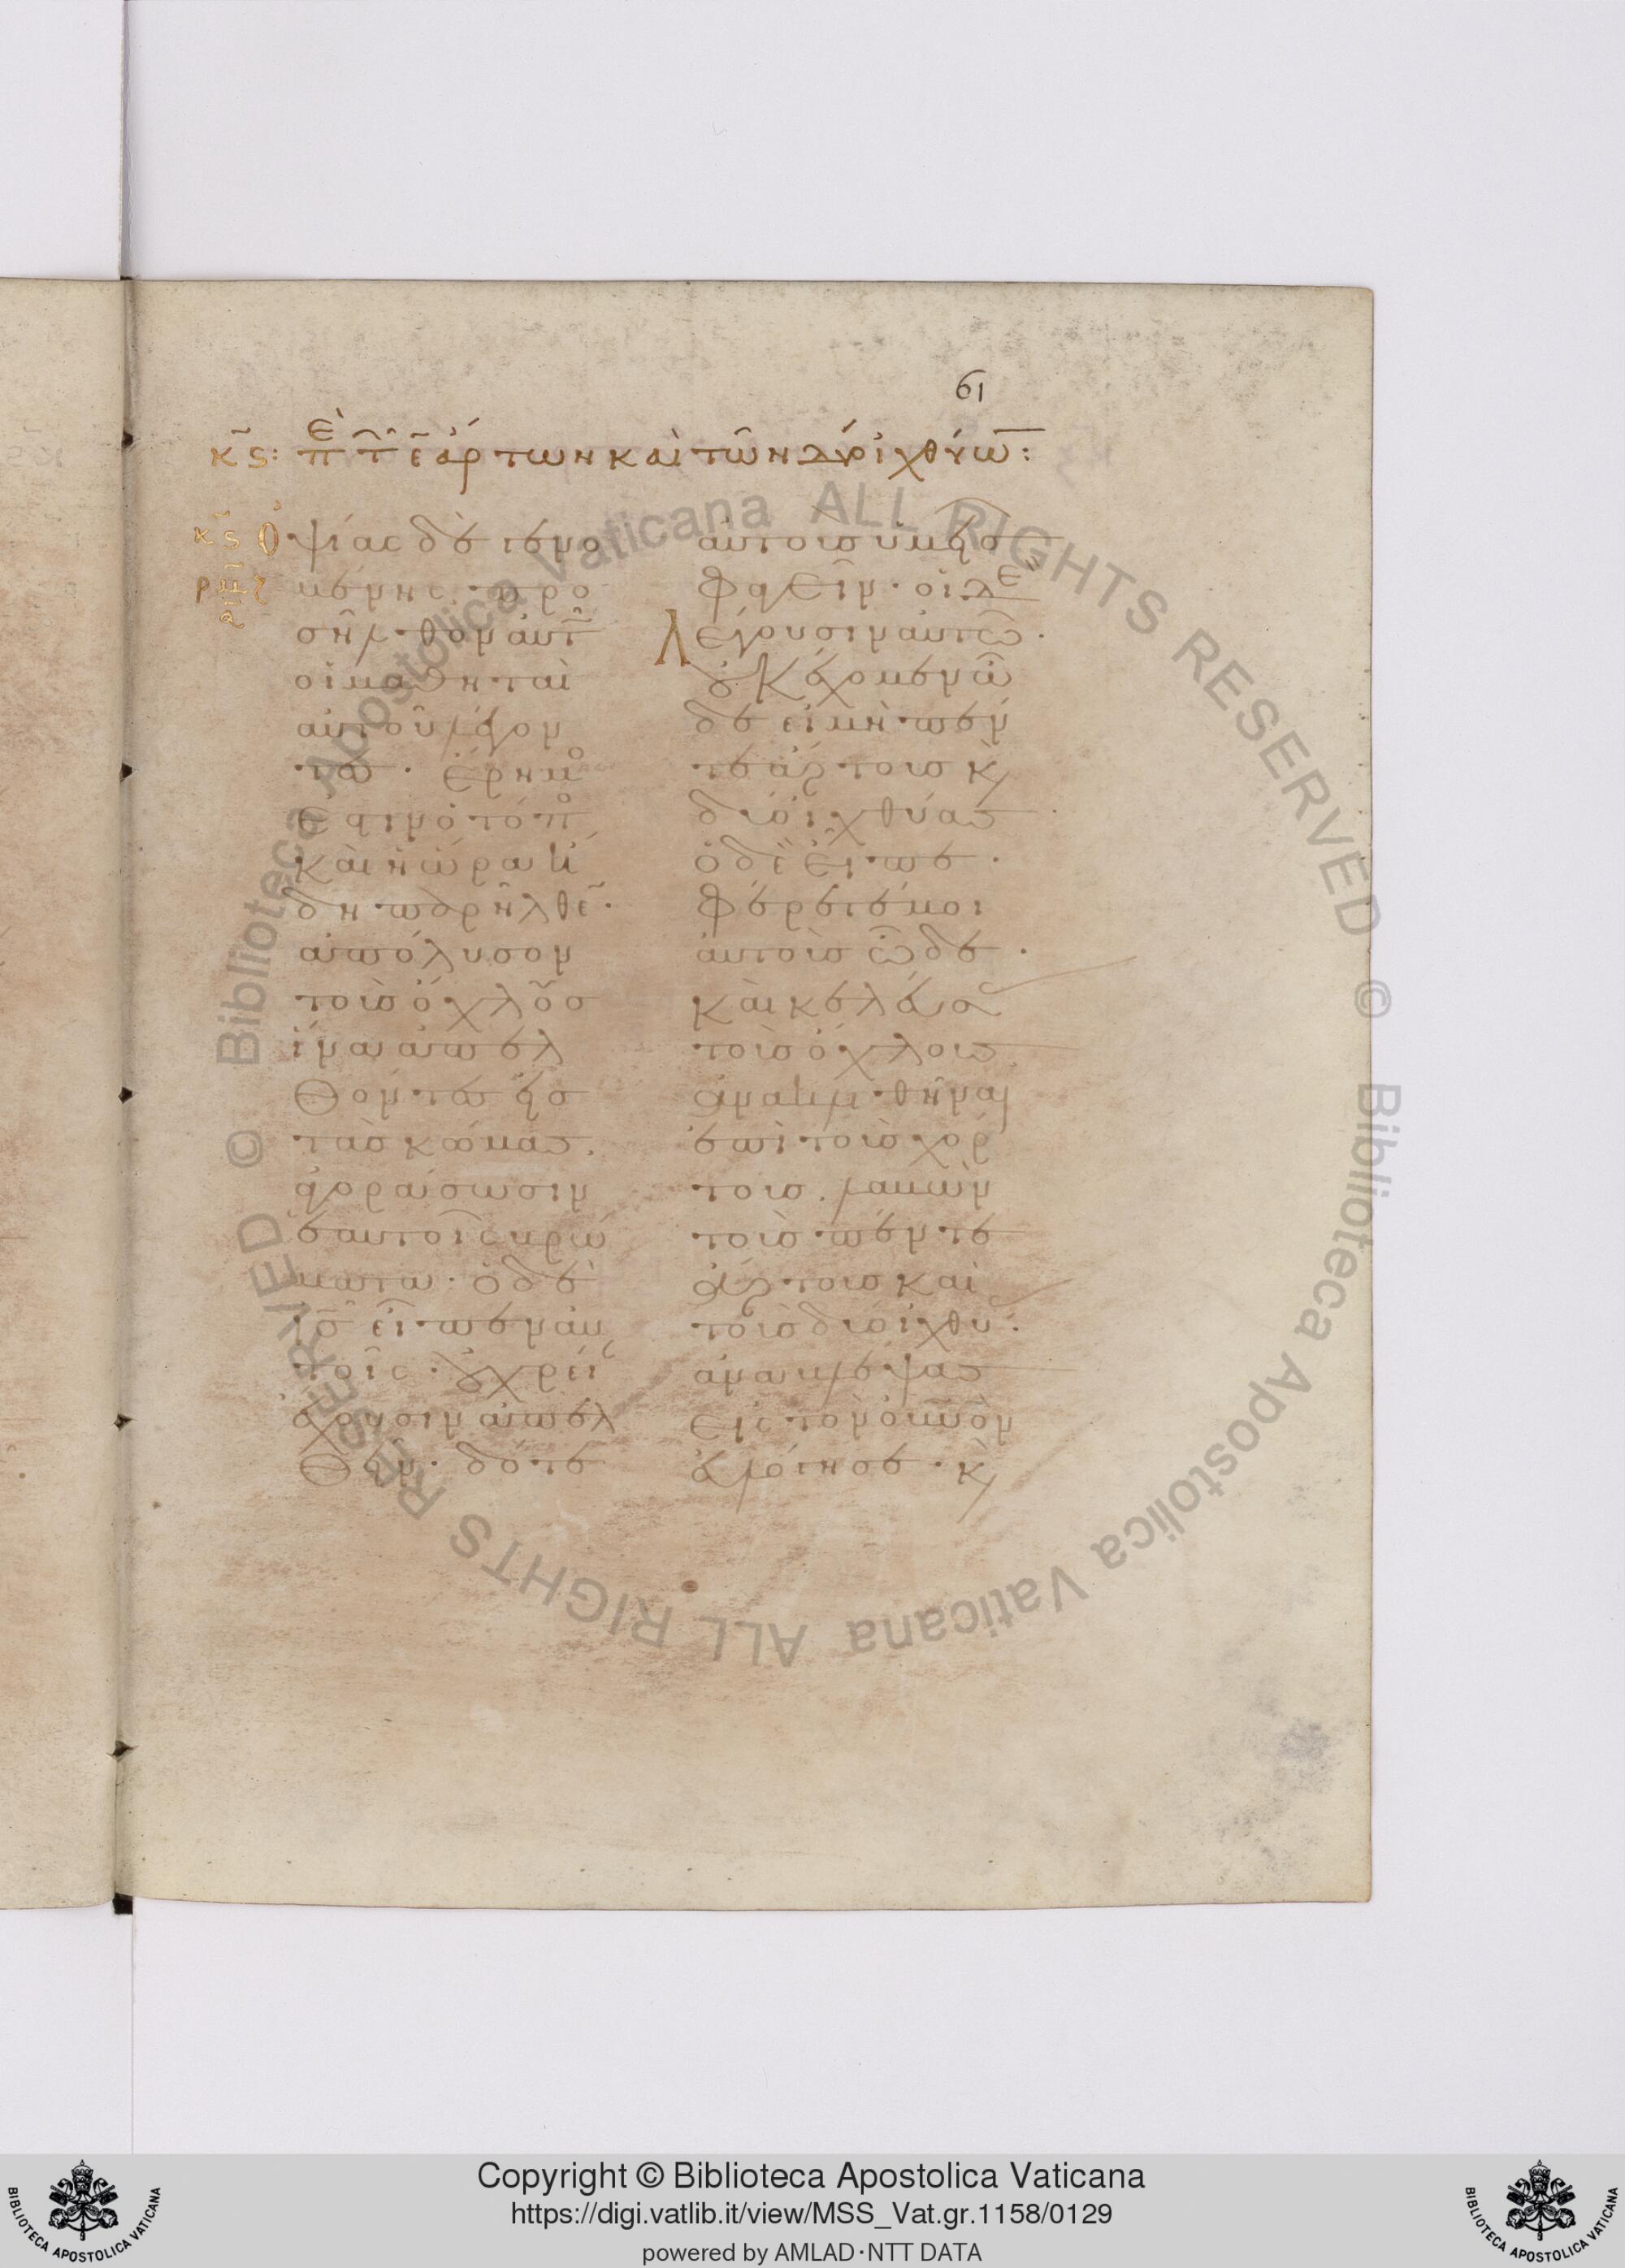 61
κ̅ς: πὲ τ̑ ε̅ ἄρτων καὶ τῶν δύο ἰχθύω̅:
κ̅ς Ὀψίας δὲ γενο
μένης· προ
σῆλθον αὐτῶ
οἱ μαθηταὶ
αὐτοῦ λέγον
τες· ἔρημο
ἐστιν ὁ τόπο
καὶ ἡ ὥρα ἤ
δη παρῆλθε̅·
ἀπόλυσον
τοὺς ὄχλους
ἵνα ἀπελ
θόντες εἰς
τὰς κώμας.
ἀγοράσωσιν
ἑαυτοῖς βρώ
ματα· ὁ δὲ
ι̅ς̅ εἶπεν αὐ
τοῖς· οὐ χρεί
ἔχουσιν ἀπελ
θεῖν· δότε
αὐτοῖς ὑμεῖς
φαγεῖν· οἱ δὲ
λέγουσιν αὐτῶ·
οὐκ ἔχομεν ὧ
δε εἰ μὴ πέν
τε ἄρτους κ(αὶ)
δύο ἰχθύας·
ὁ δὲ εἶπε·
φέρετέ μοι
αὐτοὺς ὧδε·
καὶ κελεύσας
τοὺς ὄχλους
ἀνακλιθῆναι
ἐπὶ τοὺς χόρ
τους. λαβὼν
τοὺς πέντε
ἄρτους καὶ
τοὺς δύο ἰχθύ:
ἀναβλέψας
εἰς τὸν οὐ̅νὸν
εὐλόγησε· κ(αὶ)
Copyright © Biblioteca Apostolica Vaticana
https://digi.vatlib.it/view/MSS_Vat.gr.1158/0129
powered by AMLAD·NTT DATA
BIBLIOTECA APOSTOLICA VATICANA
BIBLIOTECA APOSTOLICA VATICANA
© Biblioteca Apostolica Vaticana ALL RIGHTS RESERVED © Biblioteca Apostolica Vaticana ALL RIGHTS RESERVED